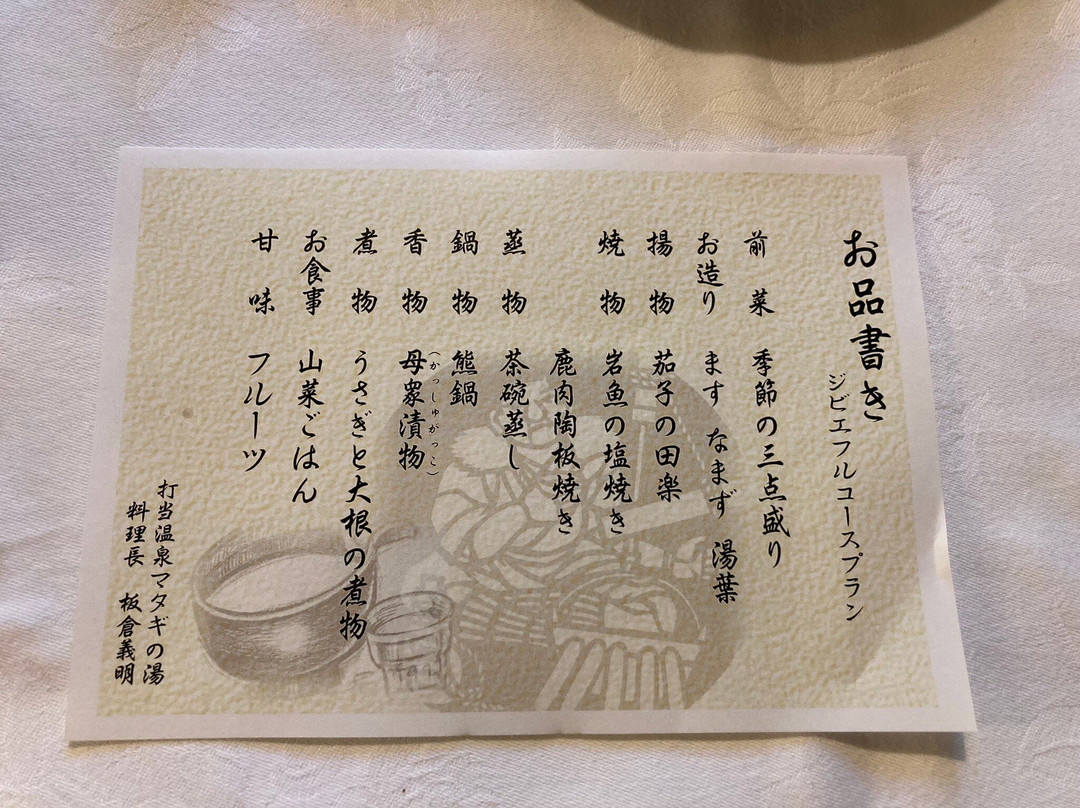 お品書き
ジビエフルコースプラン
前菜 季節の三点盛り
お造り ます なまず 湯葉
揚物 茄子の田楽
焼物 岩魚の塩焼き
鹿肉陶板焼き
蒸物 茶碗蒸し
鍋物 熊鍋
(かっしゅがっこ)
香物 母衆漬物
煮物 うさぎと大根の煮物
お食事 山菜ごはん
甘味 フルーツ
打当温泉マタギの湯
料理長 板倉義明